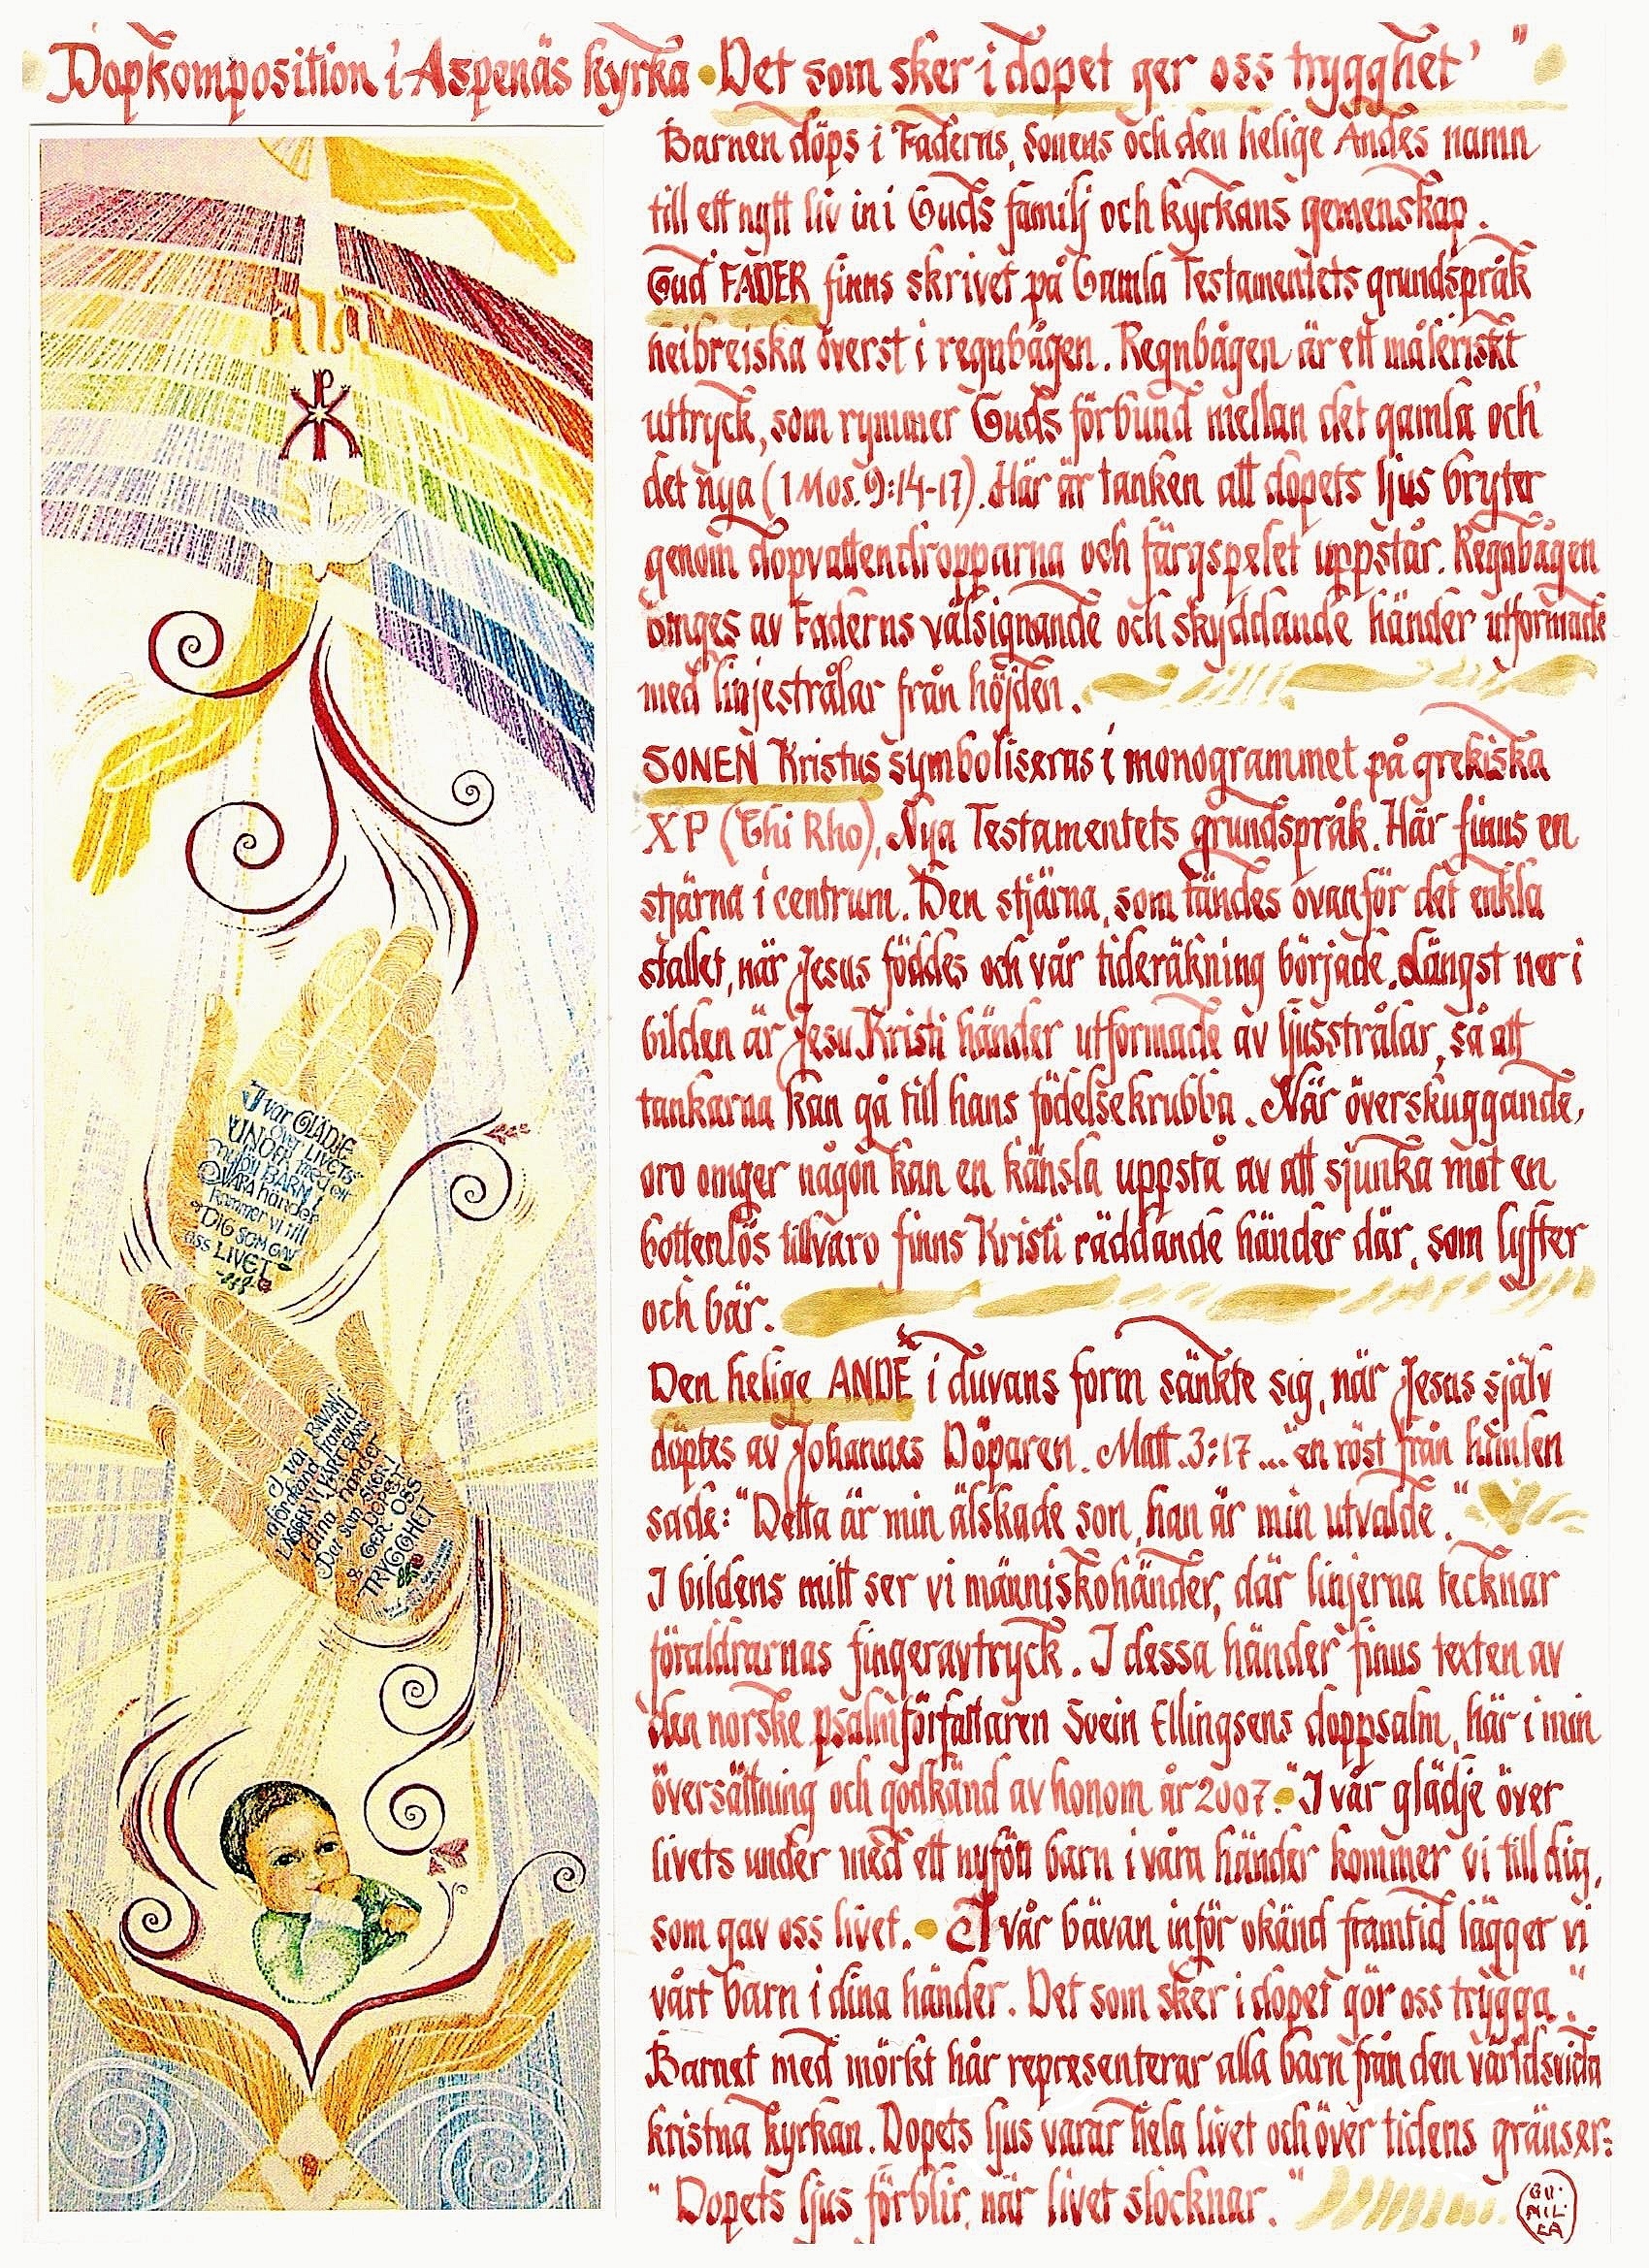 Dopkomposition i Aspenäs kyrka • Det som sker i dopet ger oss trygghet' "
Barnen döps i Faderns, Sonens och den helige Andes namn
till ett nytt liv in i Guds familj och kyrkans gemenskap.
Gud FADER finns skrivet på Gamla Testamentets grundspråk
heibreiska överst i regnbågen. Regnbågen är ett måleriskt
uttryck, som rymmer Guds förbund mellan det gamla och
det nya (1 Mos. 9:14-17). Här är tanken att dopets ljus bryter
genom dopvattendropparna och färgspelet uppstår. Regnbågen
omges av Faderns välsignande och skyddande händer utformade
med linjestrålar från höjden.
SONEN Kristus symboliseras i monogrammet på grekiska
XP (Chi Rho), Nya Testamentets grundspråk. Här finns en
stjärna i centrum. Den stjärna, som tändes ovanför det enkla
stallet, när Jesus föddes och vår tideräkning började. Längst ner i
bilden är Jesu Kristi händer utformade av ljusstrålar, så att
tankarna kan gå till hans födelsekrubba. När överskuggande,
oro omger någon kan en känsla uppstå av att sjunka mot en
bottenlös tillvaro finns Kristi räddande händer där, som lyfter
och bär.
Den helige ANDE i duvans form sänkte sig, när Jesus själv
döptes av Johannes Döparen. Matt. 3:17 ... "en röst från himlen
sade: "Detta är min älskade son, han är min utvalde."
I bildens mitt ser vi människohänder, där linjerna tecknar
föräldrarnas fingeravtryck. I dessa händer finns texten av
den norske psalmförfattaren Svein Ellingsens doppsalm, här i min
översättning och godkänd av honom år 2007. • "I vår glädje över
livets under med ett nyfött barn i våra händer kommer vi till dig,
som gav oss livet. • I vår bävan inför okänd framtid lägger vi
vårt barn i dina händer. Det som sker i dopet gör oss trygga."
Barnet med mörkt hår representerar alla barn från den världsvida
kristna kyrkan. Dopets ljus varar hela livet och över tidens gränser:
"Dopets ljus förblir, när livet slocknar."
XP
I vår GLÄDJE
över LIVETS
UNDER med ett
BARN i
VÅRA händer
kommer vi till
DIG som gav
oss LIVET
I vår BÄVAN
inför okänd framtid
LÄGGER VI VÅRT BARN
i dina händer
Det som SKER i
DOPET
GER OSS
TRYGGHET